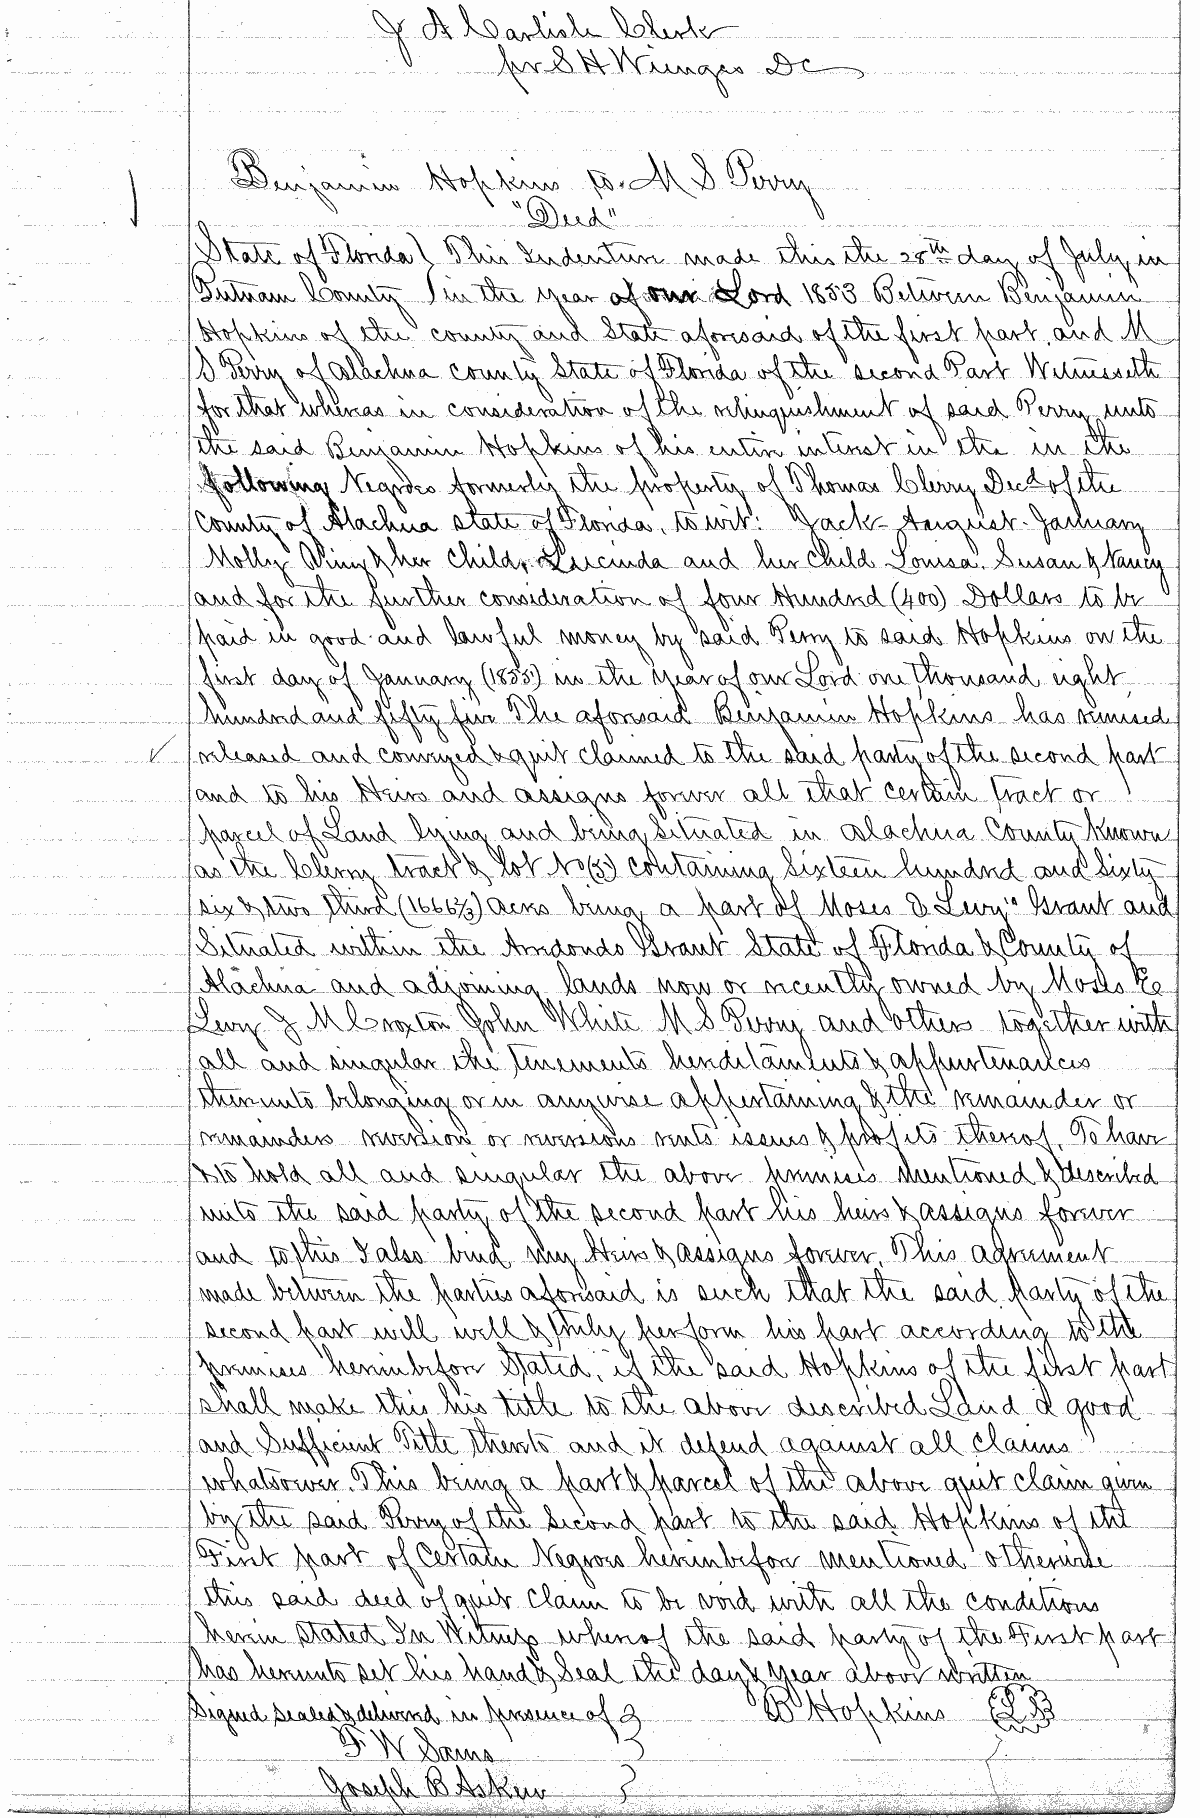 J A Carlisle Clerk
pr S H Wienges DC
Benjamin Hopkins to M S Perry
"Deed"
State of Florida ) This Indenture made this the 28th day of July in
Putnam County ) in the year of our Lord 1853 Between Benjamin
Hopkins of the county and State aforesaid of the first part, and M
S Perry of Alachua county State of Florida of the second Part Witnesseth
for that whereas in consideration of the relinquishment of said Perry unto
the said Benjamin Hopkins of his entire interest in the in the
following Negroes formerly the property of Thomas Cherry Decd of the
County of Alachua state of Florida, to wit: Jack - August - January
Molly Viny & her child, Lucinda and her child Louisa, Susan & Nancy
and for the further consideration of four Hundred (400) Dollars to be
paid in good and lawful money by said Perry to said Hopkins on the
first day of January (1855) in the year of our Lord one thousand eight
hundred and fifty five The aforesaid Benjamin Hopkins has remised
released and conveyed & quit claimed to the said party of the second part
and to his Heirs and assigns forever all that certain tract or
parcel of Land lying and being situated in Alachua County known
as the Cherry tract & lot No (5) containing Sixteen hundred and Sixty
six & two third (1666⅔) acres being a part of Moses E Levy's Grant and
Situated within the Arredondo Grant State of Florida & County of
Alachua and adjoining lands now or recently owned by Moses E
Levy J M Croxton John White M S Perry and others together with
all and singular the tenements hereditaments & appurtenances
thereunto belonging or in anywise appertaining & the remainder or
remainders reversion or reversions rents issues & profits thereof. To have
& to hold all and singular the above premises mentioned & described
unto the said party of the second part his heirs & assigns forever
and to this I also bind my Heirs & assigns forever. This agreement
made between the parties aforesaid is such that the said party of the
second part will well & truly perform his part according to the
premises hereinbefore Stated, if the said Hopkins of the first part
shall make this his title to the above described Land a good
and Sufficient Title thereto and it defend against all claims
whatsoever. This being a part & parcel of the above quit claim given
by the said Perry of the Second part to the said Hopkins of the
First part of Certain Negroes hereinbefore mentioned otherwise
this said deed of quit claim to be void with all the conditions
herein stated In Witness whereof the said party of the First part
has hereunto set his hand & Seal the day & year above written
Signed sealed & delivered in presence of } B Hopkins (LS)
F. W Sams }
Joseph B Askew }